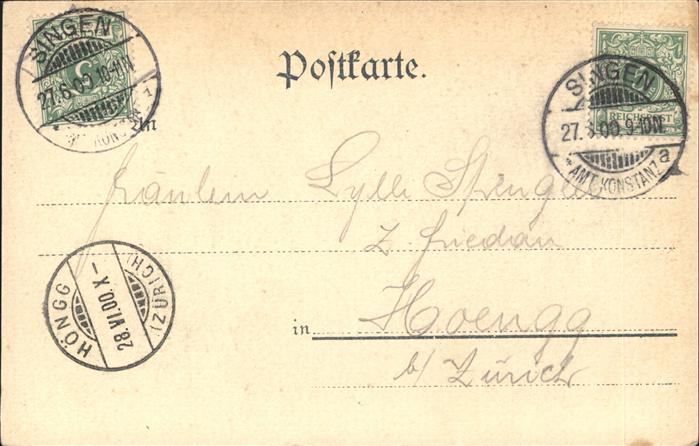 SINGEN
27.6.00.10-11N.
Postkarte.
SINGEN
27.6.00.9-10N.
* AMT KONSTANZ a
REICHSPOST
An
Fräulein Sylli Spengler
z. Friedau
in Hoengg
b/ Zürich
HÖNGG
28.VI.00.X-
(ZÜRICH)